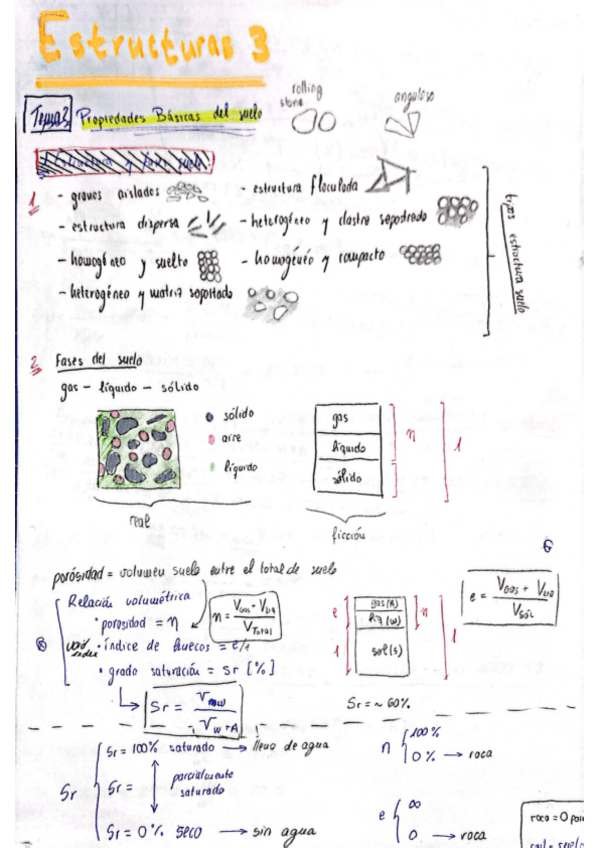 Estructuras 3
Tema 2 Propiedades Básicas del suelo
rolling stone
anguloso
1 - granos aislados
- estructura floculada
- estructura dispersa
- heterogéneo y clastro soportado
- homogéneo y suelto
- homogéneo y compacto
- heterogéneo y matriz soportado
tipos estructura suelo
2 Fases del suelo
gas - líquido - sólido
sólido
aire
líquido
real
gas
líquido
sólido
n
1
ficción
porósidad = volumen suelo entre el total de suelo
Relación volumétrica
• porosidad = n
n = VGas + VLiq / VTotal
• índice de huecos = e/1
• grado saturación = Sr [%]
Sr = / VW+A
e
1
gas (A)
liq (w)
sol (s)
n
1
e = VGas + VLiq / VSól
Sr = ~ 60%
Sr
Sr = 100% saturado → lleno de agua
Sr = parcialmente saturado
Sr = 0% seco → sin agua
n
100%
0% → roca
e
∞
0 → roca
roca = 0